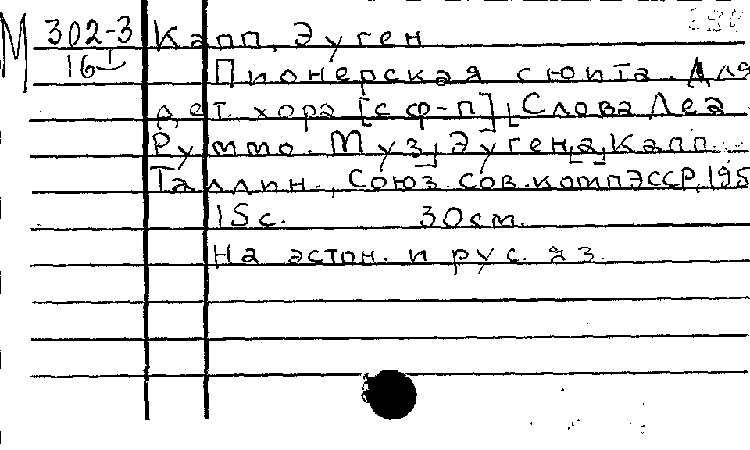 М 302-3 Капп, Эуген
16 Пионерская сюита. Для
дет. хора [с ф-п]. Слова Леа
Руммо. Муз. Эуген[а] Капп.
Таллин, Союз сов. комп ЭССР, 195
15 с. 30 см.
На эстон. и рус. яз.